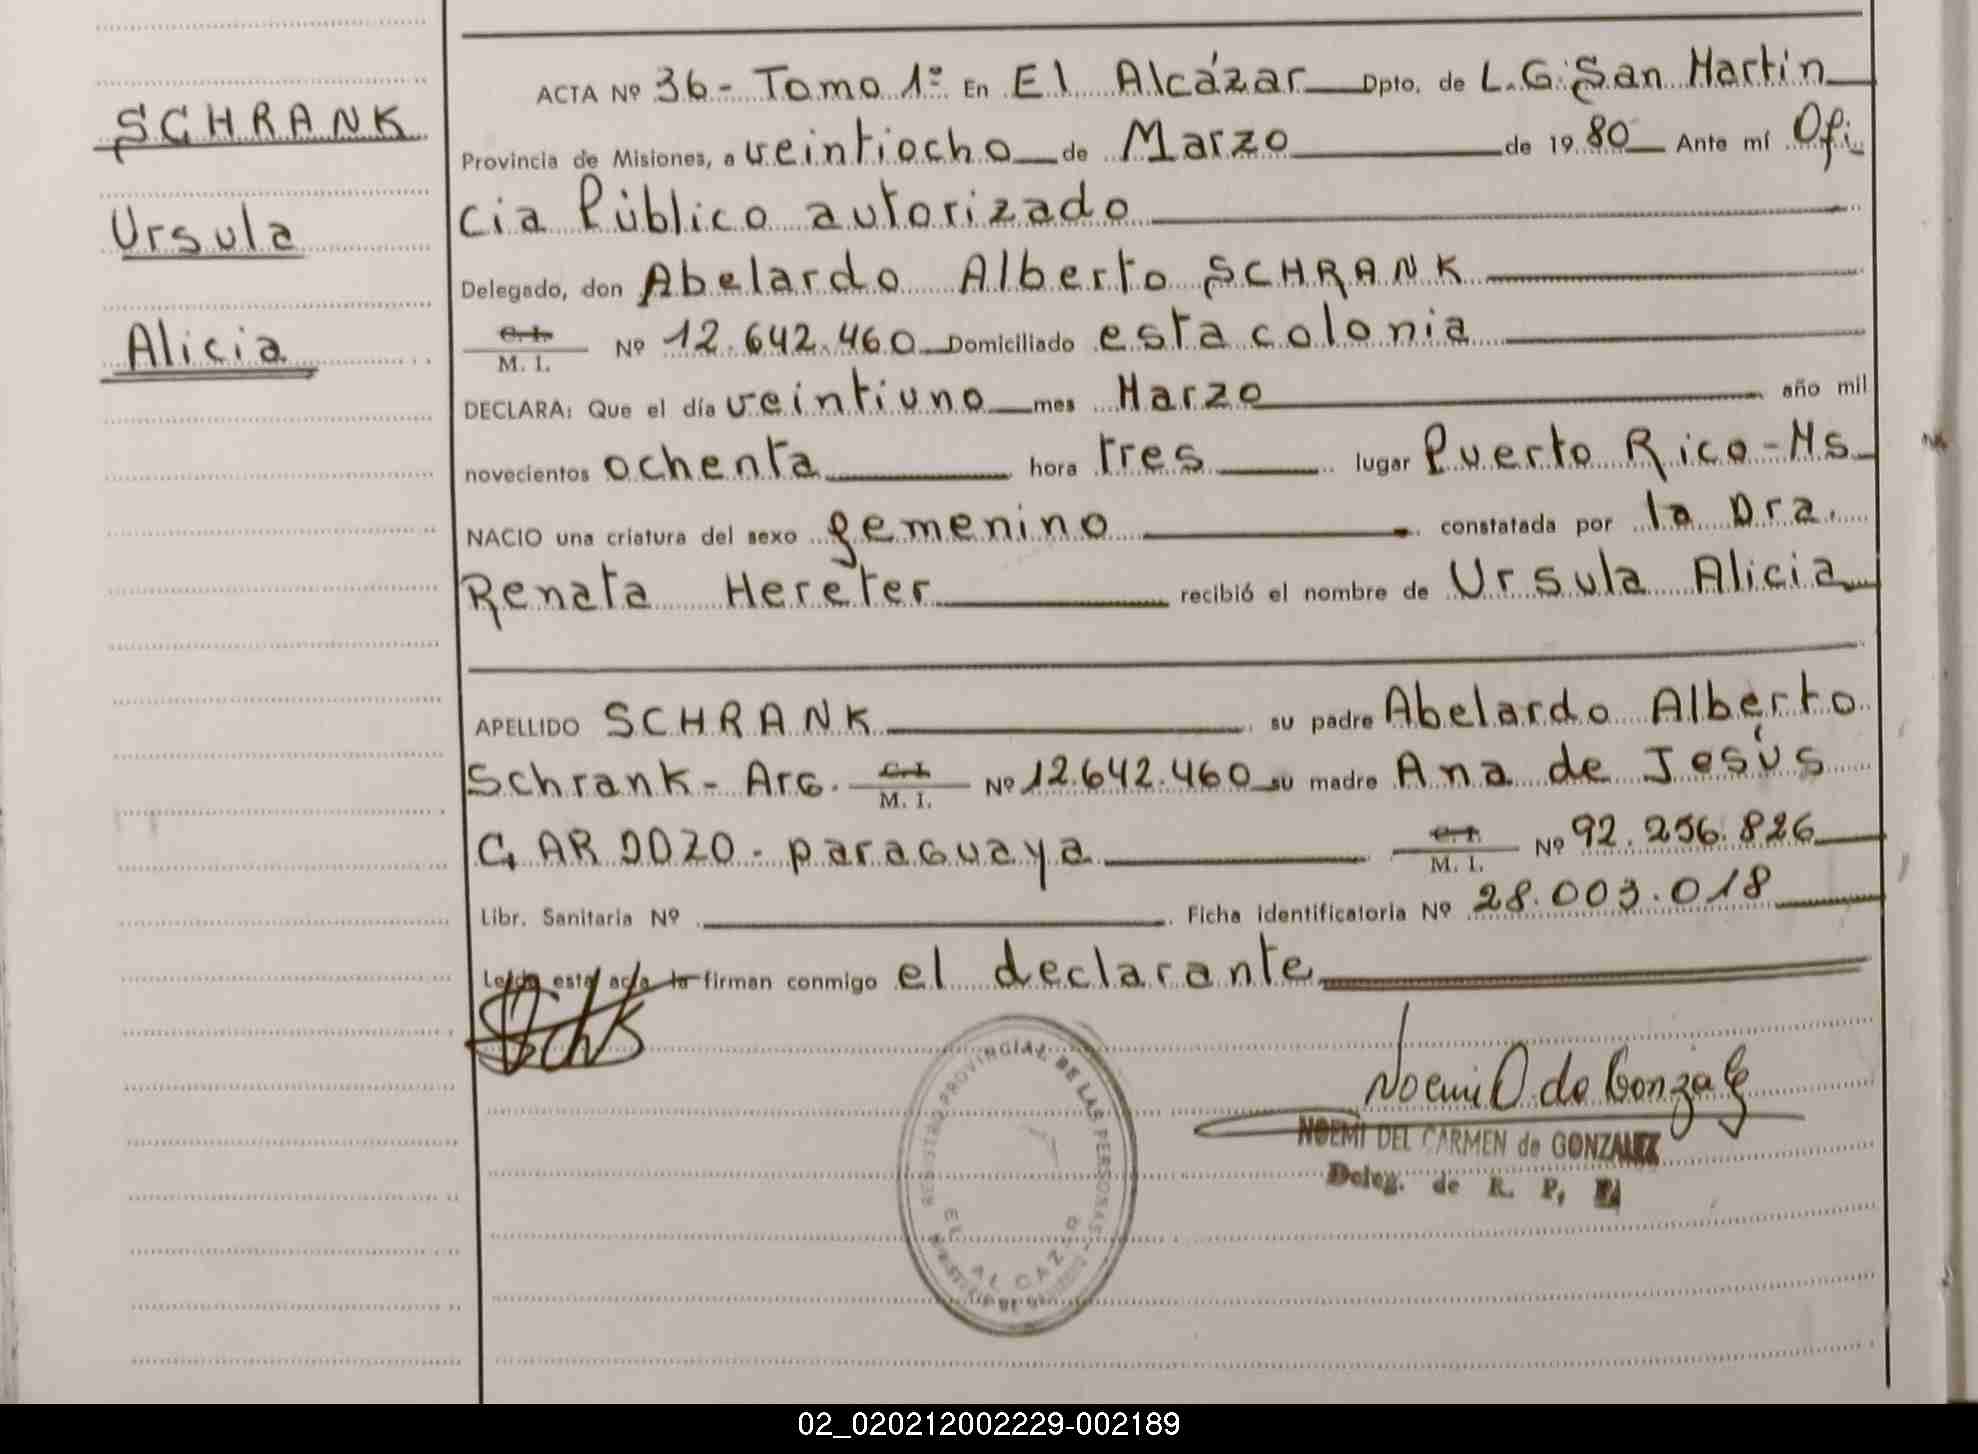 SCHRANK
Ursula
Alicia
ACTA Nº 36 - Tomo 1º En El Alcázar Dpto. de L.G. San Martín
Provincia de Misiones, a veintiocho de Marzo de 1980 Ante mí Ofi
cia Público autorizado
Delegado, don Abelardo Alberto SCHRANK
C.I.
M. I. Nº 12.642.460 Domiciliado esta colonia
DECLARA: Que el día veintiuno mes Marzo año mil
novecientos ochenta hora tres lugar Puerto Rico - Ms
NACIO una criatura del sexo femenino constatada por la Dra.
Renata Hereter recibió el nombre de Ursula Alicia
APELLIDO SCHRANK su padre Abelardo Alberto
Schrank - Arg. C.I. M. I. Nº 12.642.460 su madre Ana de Jesús
CARDOZO - paraguaya C.I. M. I. Nº 92.256.826
Libr. Sanitaria Nº Ficha identificatoria Nº 28.003.018
Leída esta acta la firman conmigo el declarante
REGISTRO PROVINCIAL DE LAS PERSONAS
EL ALCAZAR
MINISTERIO DE GOBIERNO
Noemi D. de Gonzalez
NOEMI DEL CARMEN de GONZALEZ
Deleg. de R. P.
02_020212002229-002189